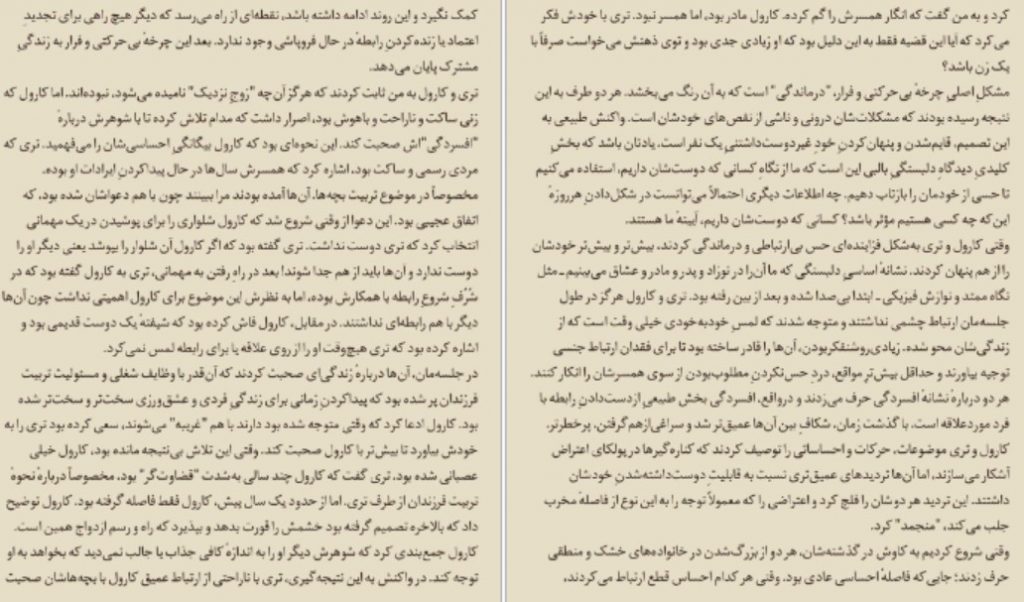 کمک نگیرد و این روند ادامه داشته باشد، نقطه‌ای از راه می‌رسد که دیگر هیچ راهی برای تجدیدِ
اعتماد یا زنده‌کردنِ رابطهٔ در حال فروپاشی وجود ندارد. بعد این چرخهٔ بی‌حرکتی و فرار به زندگیِ
مشترک پایان می‌دهد.
تری و کارول به من ثابت کردند که هرگز آن‌چه "زوجِ نزدیک" نامیده می‌شود، نبوده‌اند. اما کارول که
زنی ساکت و ناراحت و باهوش بود، اصرار داشت که مدام تلاش کرده تا با شوهرش دربارهٔ
"افسردگی"اش صحبت کند. این نحوه‌ای بود که کارول بیگانگیِ احساسی‌شان را می‌فهمید. تری که
مردی رسمی و ساکت بود، اشاره کرد که همسرش سال‌ها در حال پیداکردنِ ایرادات او بوده.
مخصوصاً در موضوع تربیت بچه‌ها. آن‌ها آمده بودند مرا ببینند چون با هم دعواشان شده بود، که
اتفاق عجیبی بود. این دعوا از وقتی شروع شد که کارول شلواری را برای پوشیدن در یک مهمانی
انتخاب کرد که تری دوست نداشت. تری گفته بود که اگر کارول آن شلوار را بپوشد یعنی دیگر او را
دوست ندارد و آن‌ها باید از هم جدا شوند! بعد در راهِ رفتن به مهمانی، تری به کارول گفته بود که در
شُرُفِ شروعِ رابطه با همکارش بوده، اما به نظرش این موضوع برای کارول اهمیتی نداشت چون آن‌ها
دیگر با هم رابطه‌ای نداشتند. در مقابل، کارول فاش کرده بود که شیفتهٔ یک دوست قدیمی بود و
اشاره کرده بود که تری هیچ‌وقت او را از روی علاقه یا برای رابطه لمس نمی‌کرد.
در جلسه‌مان، آن‌ها دربارهٔ زندگی‌ای صحبت کردند که آن‌قدر با وظایف شغلی و مسئولیت تربیت
فرزندان پر شده بود که پیداکردنِ زمانی برای زندگیِ فردی و عشق‌ورزی سخت‌تر و سخت‌تر شده
بود. کارول ادعا کرد که وقتی متوجه شده بود دارند با هم "غریبه" می‌شوند، سعی کرده بود تری را به
خودش بیاورد تا بیش‌تر با کارول صحبت کند. وقتی این تلاش بی‌نتیجه مانده بود، کارول خیلی
عصبانی شده بود. تری گفت که کارول چند سالی به‌شدت "قضاوت‌گر" بود، مخصوصاً دربارهٔ نحوهٔ
تربیت فرزندان از طرف تری. اما از حدود یک سال پیش، کارول فقط فاصله گرفته بود. کارول توضیح
داد که بالاخره تصمیم گرفته بود خشمش را قورت بدهد و بپذیرد که راه و رسم ازدواج همین است.
کارول جمع‌بندی کرد که شوهرش دیگر او را به اندازهٔ کافی جذاب یا جالب نمی‌دید که بخواهد به او
توجه کند. در واکنش به این نتیجه‌گیری، تری با ناراحتی از ارتباط عمیق کارول با بچه‌هاشان صحبت
کرد و به من گفت که انگار همسرش را گم کرده. کارول مادر بود، اما همسر نبود. تری با خودش فکر
می‌کرد که آیا این قضیه فقط به این دلیل بود که او زیادی جدی بود و توی ذهنش می‌خواست صرفاً با
یک زن باشد؟
مشکلِ اصلیِ چرخهٔ بی‌حرکتی و فرار، "درماندگی" است که به آن رنگ می‌بخشد. هر دو طرف به این
نتیجه رسیده بودند که مشکلات‌شان درونی و ناشی از نقص‌های خودشان است. واکنش طبیعی به
این تصمیم، قایم‌شدن و پنهان‌کردنِ خودِ غیردوست‌داشتنیِ یک نفر است. یادتان باشد که بخشِ
کلیدیِ دیدگاهِ دلبستگیِ بالبی این است که ما از نگاهِ کسانی که دوست‌شان داریم، استفاده می‌کنیم
تا حسی از خودمان را بازتاب دهیم. چه اطلاعات دیگری احتمالاً می‌توانست در شکل‌دادنِ هرروزهٔ
این‌که چه کسی هستیم مؤثر باشد؟ کسانی که دوست‌شان داریم، آیینهٔ ما هستند.
وقتی کارول و تری به‌شکل فزاینده‌ای حس بی‌ارتباطی و درماندگی کردند، بیش‌تر و بیش‌تر خودشان
را از هم پنهان کردند. نشانهٔ اساسیِ دلبستگی که ما آن‌را در نوزاد و پدر و مادر و عشاق می‌بینیم ـ مثل
نگاه ممتد و نوازش فیزیکی ـ ابتدا بی‌صدا شده و بعد از بین رفته بود. تری و کارول هرگز در طول
جلسه‌مان ارتباط چشمی نداشتند و متوجه شدند که لمسِ خودبه‌خودی خیلی وقت است که از
زندگی‌شان محو شده. زیادی‌روشنفکربودن، آن‌ها را قادر ساخته بود تا برای فقدان ارتباط جنسی
توجیه بیاورند و حداقل بیش‌ترِ مواقع، دردِ حس‌نکردنِ مطلوب‌بودن از سوی همسرشان را انکار کنند.
هر دو دربارهٔ نشانهٔ افسردگی حرف می‌زدند و درواقع، افسردگی بخش طبیعیِ ازدست‌دادنِ رابطه با
فرد موردعلاقه است. با گذشت زمان، شکافِ بین آن‌ها عمیق‌تر شد و سراغی‌ازهم‌گرفتن، پرخطرتر.
کارول و تری موضوعات، حرکات و احساساتی را توصیف کردند که کناره‌گیرها در پولکای اعتراض
آشکار می‌سازند، اما آن‌ها تردیدهای عمیق‌تری نسبت به قابلیتِ دوست‌داشته‌شدنِ خودشان
داشتند. این تردید هر دوشان را فلج کرد و اعتراضی را که معمولاً توجه را به این نوع از فاصلهٔ مخرب
جلب می‌کند، "منجمد" کرد.
وقتی شروع کردیم به کاوش در گذشته‌شان، هر دو از بزرگ‌شدن در خانواده‌های خشک و منطقی
حرف زدند؛ جایی‌که فاصلهٔ احساسی عادی بود. وقتی هر کدام احساس قطع ارتباط می‌کردند،